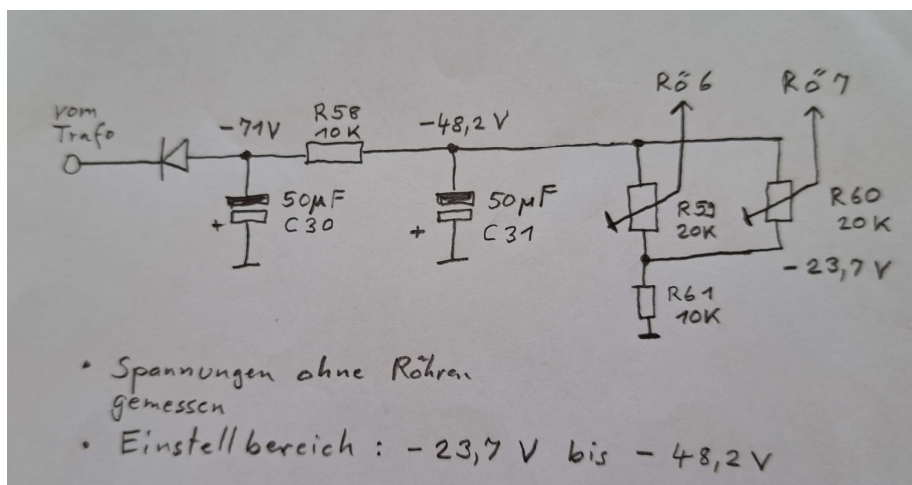 vom
Trafo
-71V
R58
10K
-48,2 V
Rö 6
Rö 7
50µF
C30
+
50µF
C31
+
R59
20K
R60
20K
-23,7 V
R61
10K
• Spannungen ohne Röhren
gemessen
• Einstellbereich : -23,7 V bis -48,2 V